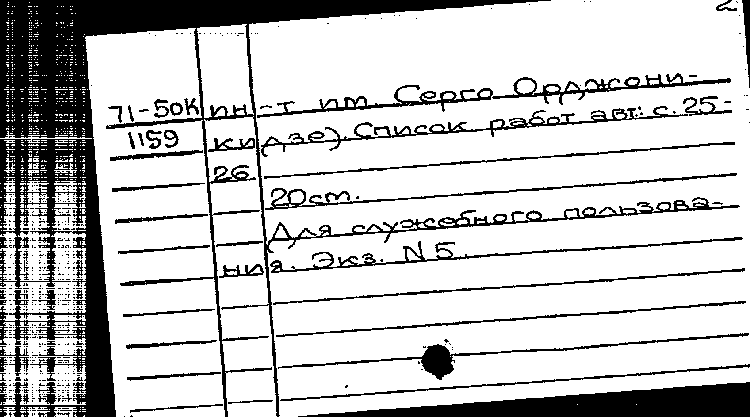 2
71-50К ин-т им. Серго Орджони-
1159 кидзе). Список работ авт.: с. 25-
26
20 cm.
Для служебного пользова-
ния. Экз. N 5.